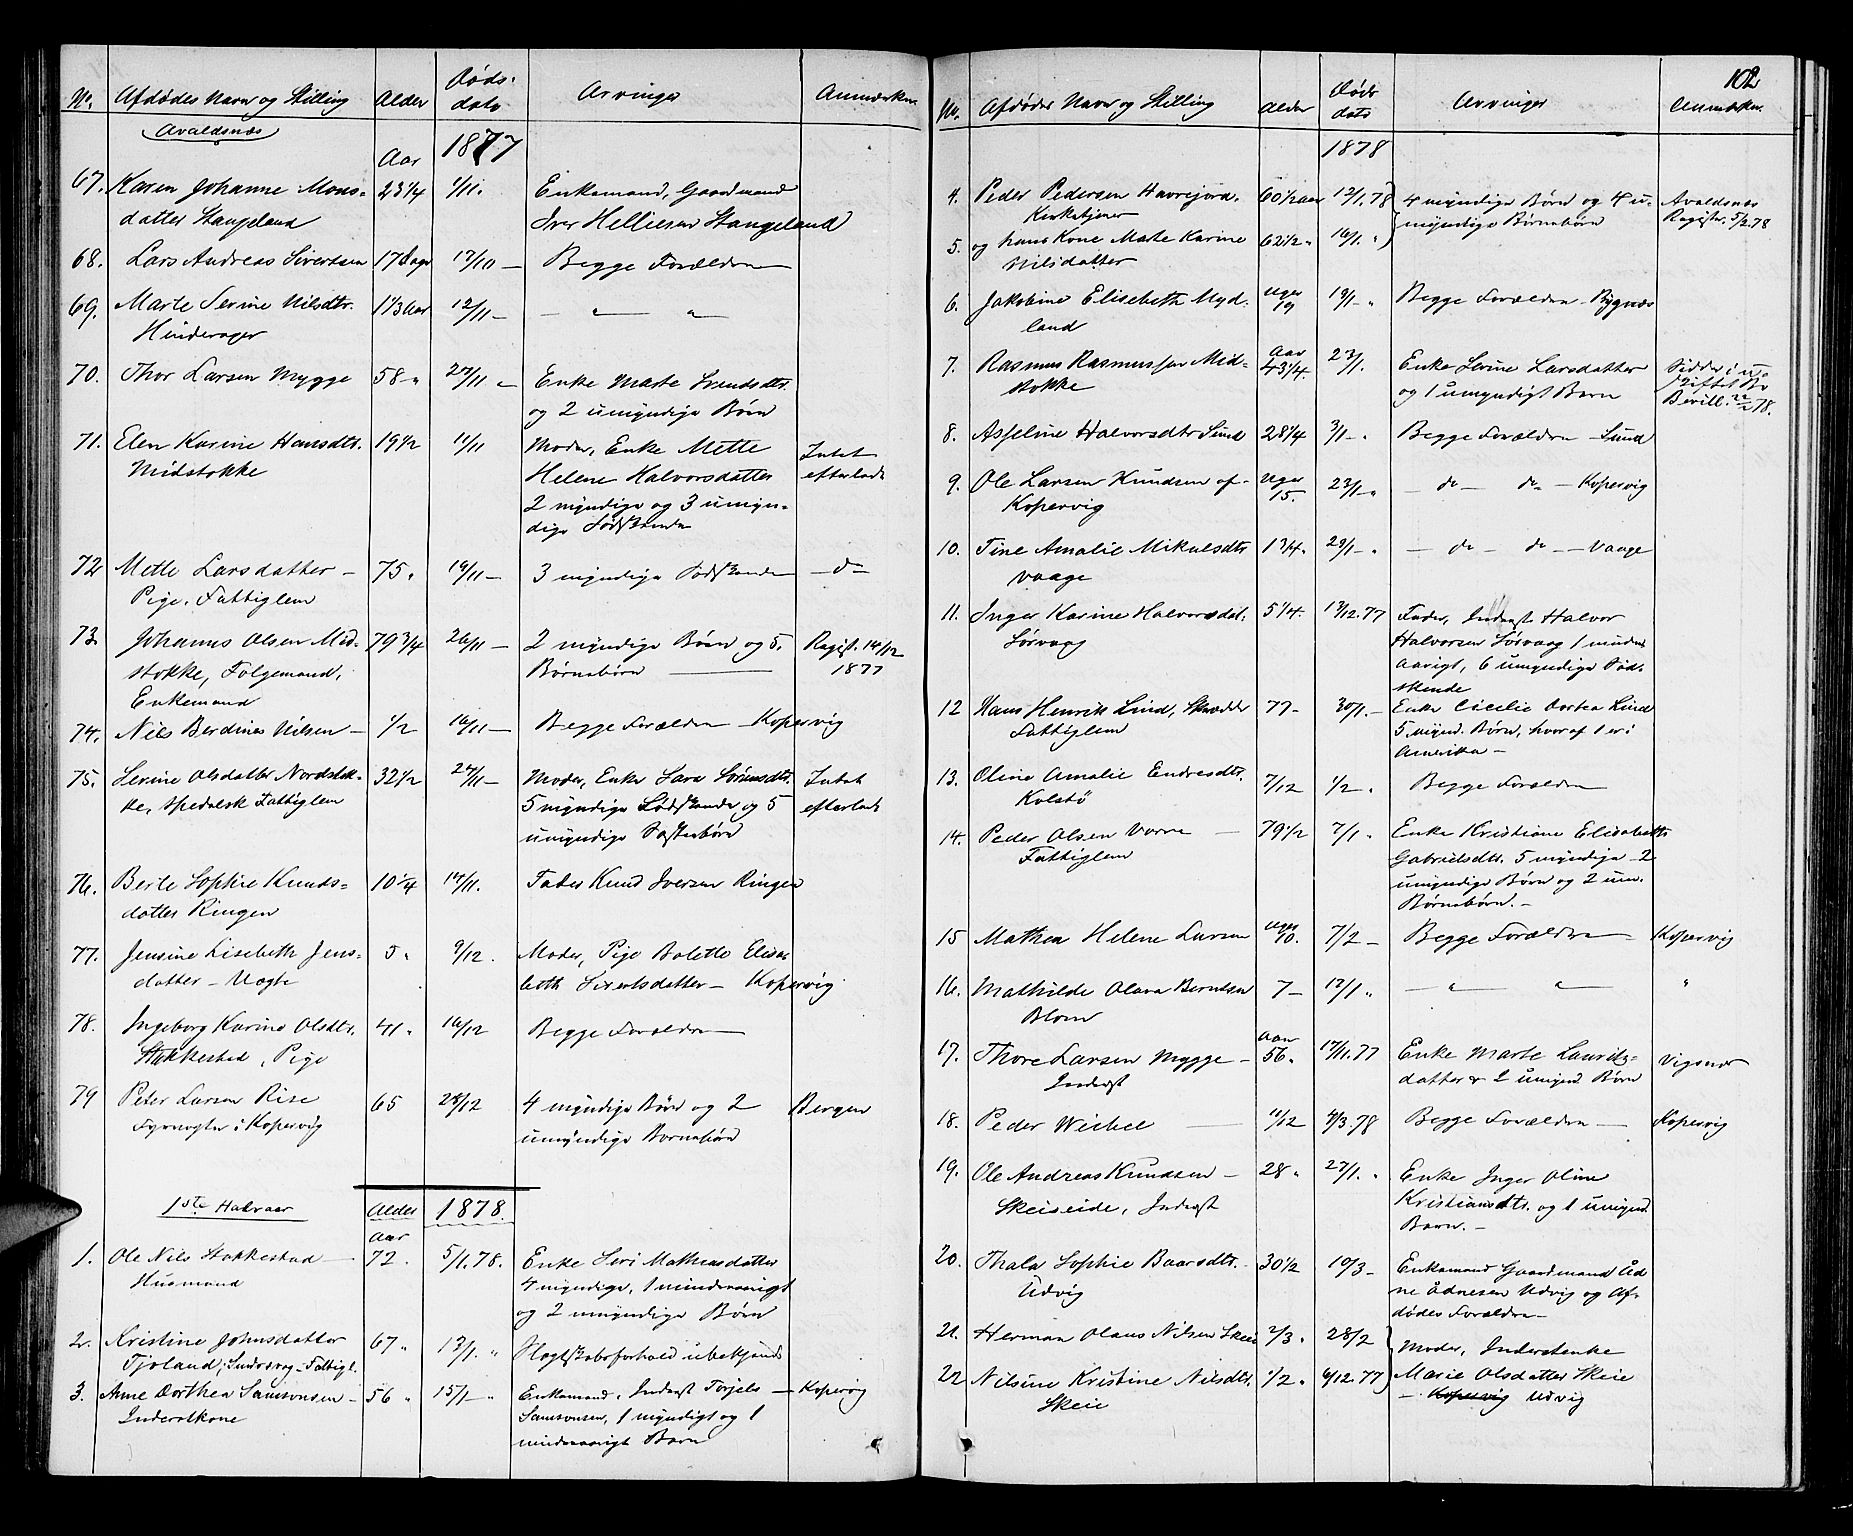 No. Afdødes Navn og Stilling Alder Døds- dato Arvinger Anmærkn.
Avaldsnæs
Aar 1877
67. Karen Johanne Mons- 23 1/4 1/11. Enkemand, Gaardmand
datter Stangeland Iver Helliesen Stangeland
68. Lars Andreas Sivertsen 17 Dage 17/10 — Begge Forældre
69. Marte Serine Nilsdtr. 1 1/3 Aar 12/11 — — " "
Hinderager
70. Thor Larsen Mygge 58 - " 27/11 - Enke Marte
og 2 umyndige Børn
71. Elen Karine Hansdtr. 19 1/2 11/11 Moder, Enke Mette Intet
Midstokke Helene Halvorsdatter efterladt
2 myndige og 3 umyn-
dige Sødskende
72 Mette Larsdatter — 75 " 19/11 — 3 myndige Sødskende — do —
Pige, Fattiglem
73. Johannes Olsen Mid- 79 3/4 26/11 — 2 myndige Børn og 5 Regist. 14/12
stokke, Folgemand, Børnebørn 1877
Enkemand
74. Nils Berdines Nilsen — 1/2 16/11 — Begge Forældre — Kopervig
75. Serine Olsdatter Nordstok- 32 1/2 27/11 — Moder, Enke Sara Sørensdtr. Intet
ke, spedalsk Fattiglem 5 myndige Sødskende og 5 efterladt
umyndige Søsterbørn
76. Berte Sophie Knuds- 10 1/4 14/11. Fader Knud Iversen Ringen
datter Ringen
77. Jensine Lisebeth Jens- 5 " 9/12. Moder, Pige Bolette Elisa-
datter — Vogts beth Sivertsdatter — Kopervig
78. Ingeborg Karine Olsdtr. 41 " 16/12 Begge Forældre
Stokkestad, Pige
79 Peter Larsen Rise 65 28/12 4 myndige Børn og 2 Bergen
Fyrvogter i Kopervig umyndige Børnebørn
1ste Halvaar Alder 1878.
Aar
1. Ole Nils Stokkestad — 72. 5/1.78. Enke Seri Mathiasdatter
Husmand 4 myndige, 1 mindreaarigt
og 2 umyndige Børn
2. Kristine Johnsdatter 67 " 13/1. " Slegtskabsforhold ubekjendt
Fattigl.
3. Anne Dorthea Samsonsen — 56 " 15/1 — Enkemand, Inderst Torjels — Kopervig
Inderstkone Samsonsen, 1 myndigt og 1
mindreaarigt Barn
102
No. Afdødes Navn og Stilling Alder Døds dato Arvinger Anmærkn.
1878
4. Peder Pedersen Havrejord. 60 1/2 aar 12/1.78 4 myndige Børn og 4 u- Avaldsnes
Kirketjener myndige Børnebørn Registr. 5/2 78
5. og hans Kone Marte Karine 62 1/2 " 16/1. "
Nilsdatter
6. Jakobine Elisabeth Myd- Uger 9 19/1 - " Begge Forældre — Bygnæs
land
7. Rasmus Rasmussen Mid- Aar 43 1/4. 23/1. Enke Serine Larsdatter Sidder i u-
stokke og 1 umyndigt Barn skiftet Bo
Bevill. 22/2 78.
8. Asseline Halvorsdtr Sund 28 1/4 3/1 — " Begge Forældre — Sund
9. Ole Larsen Knudsen af Uger 15. 23/1 - " — do — do — Kopervig
Kopervig
10. Tine Amalie Mikalsdtr 1 3/4 " 29/1 - " — do — do — Vaage
Vaage
11. Inger Karine Halvorsdat. 5 1/4. 13/12.77 Fader, Inderst Halvor
Sørvaag Halvorsen Sørvaag 1 mindre-
aarigt, 6 umyndige Sød-
skende
12 Hans Henrik Lind, Skrædder 77 - 30/1. — Enke Cicilie Dortea Lind
Fattiglem 5 mynd. Børn, hvoraf 1 er i
Amerika —
13. Oline Amalie Endresdtr. 7/12 1/2 " Begge Forældre
Kolstø
14. Peder Olsen Vorre — 79 1/2 7/1 " Enke Kristiane Elisabeth
Fattiglem Gabrielsdtr. 5 myndige 2
umyndige Børn og 2 um.
Børnebørn. —
15 Mathea Helene Larsen Uger 10. 7/2 — Begge Forældre — Kopervig
16. Mathilde Olava Berntsen 7 — 12/1 " — " " "
Blom
17. Thore Larsen Mygge — Aar 56 " 17/11.77 Enke Marte Laurits- Vigsnæs
Inderst datter & 2 umynd. Børn
18. Peder Weihel — 11/12 4/3.78 Begge Forældre — Kopervig
19. Ole Andreas Knudsen — 28 " 27/1. " Enke Inger Oline
Skeiseide, Inderst Kristiansdtr. og 1 umynd.
Barn. —
20. Thala Sophie Baarsdtr. 30 1/2 19/3 — Enkemand Gaardmand Åd-
Udvig ne Ådnesen Udvig og Af-
dødes Forældre —
21. Herman Olaus Nilsen Skeie 2/3 " 28/2 Moder, Inderstenke
22 Nilsine Kristine Nilsdtr. 1/2 " 6/12.77 Marie Olsdatter Skeie
Skeie — Kopervig Udvig